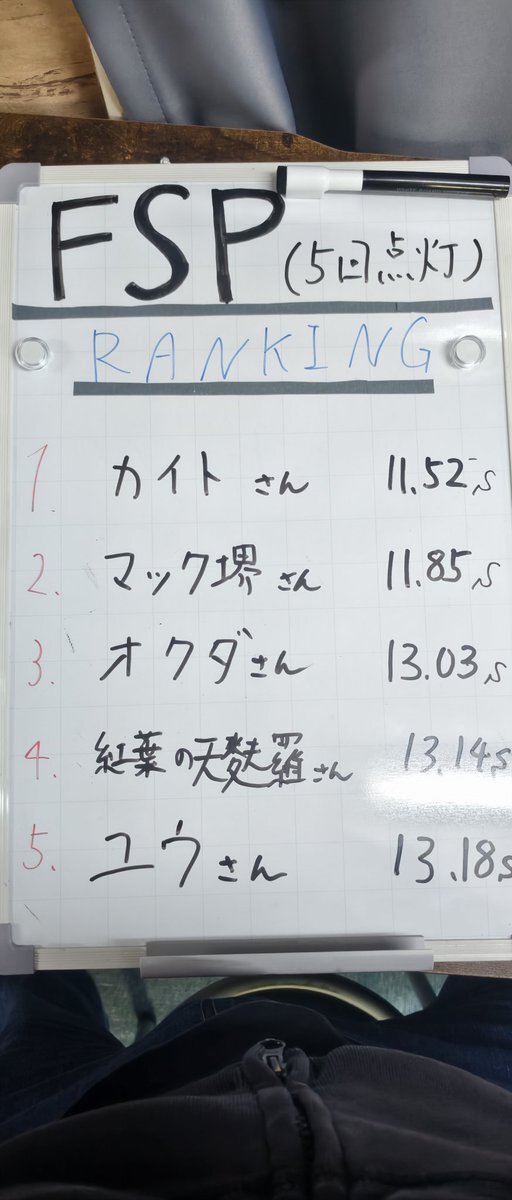 FSP (5回点灯)
RANKING
1. カイトさん 11.52s
2. マック堺さん 11.85s
3. オクダさん 13.03s
4. 紅葉の天麩羅さん 13.14s
5. ユウさん 13.18s